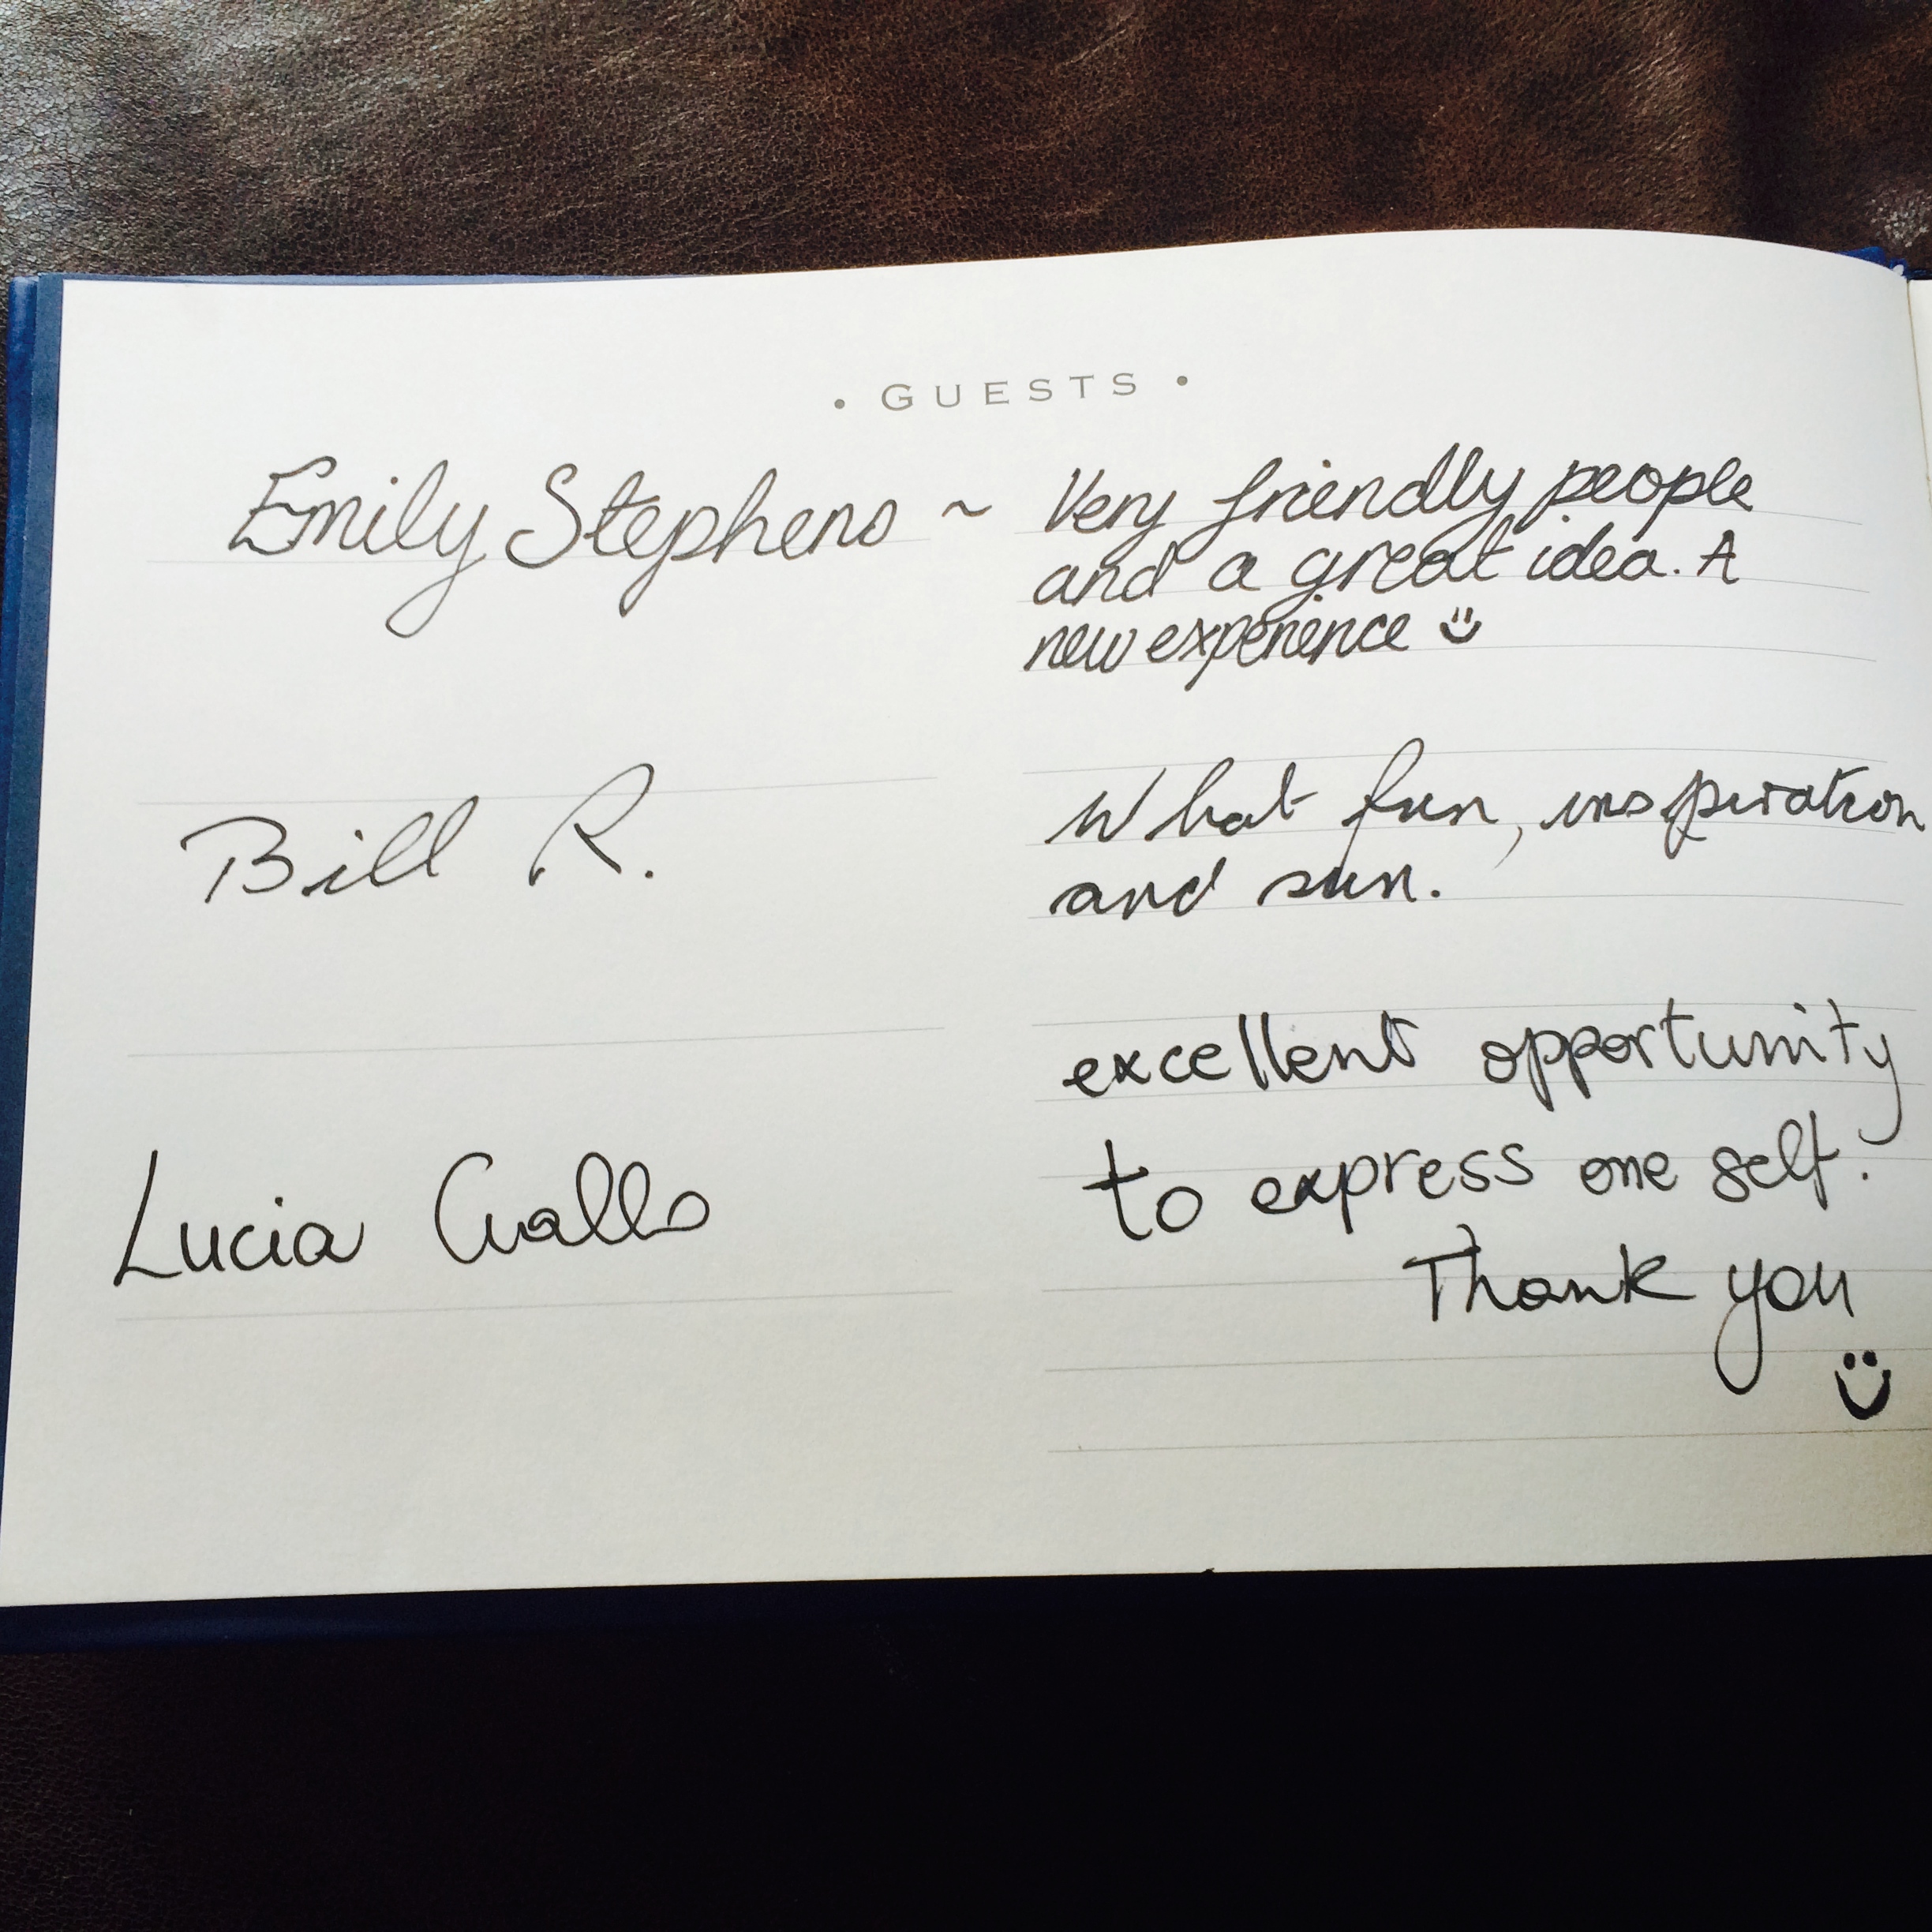 • GUESTS •
Emily Stephens ~ Very friendly people
and a great idea. A
new experience
Bill R.
What fun, inspiration
and sun.
excellent opportunity
to express one self.
Lucia Gallo
Thank you